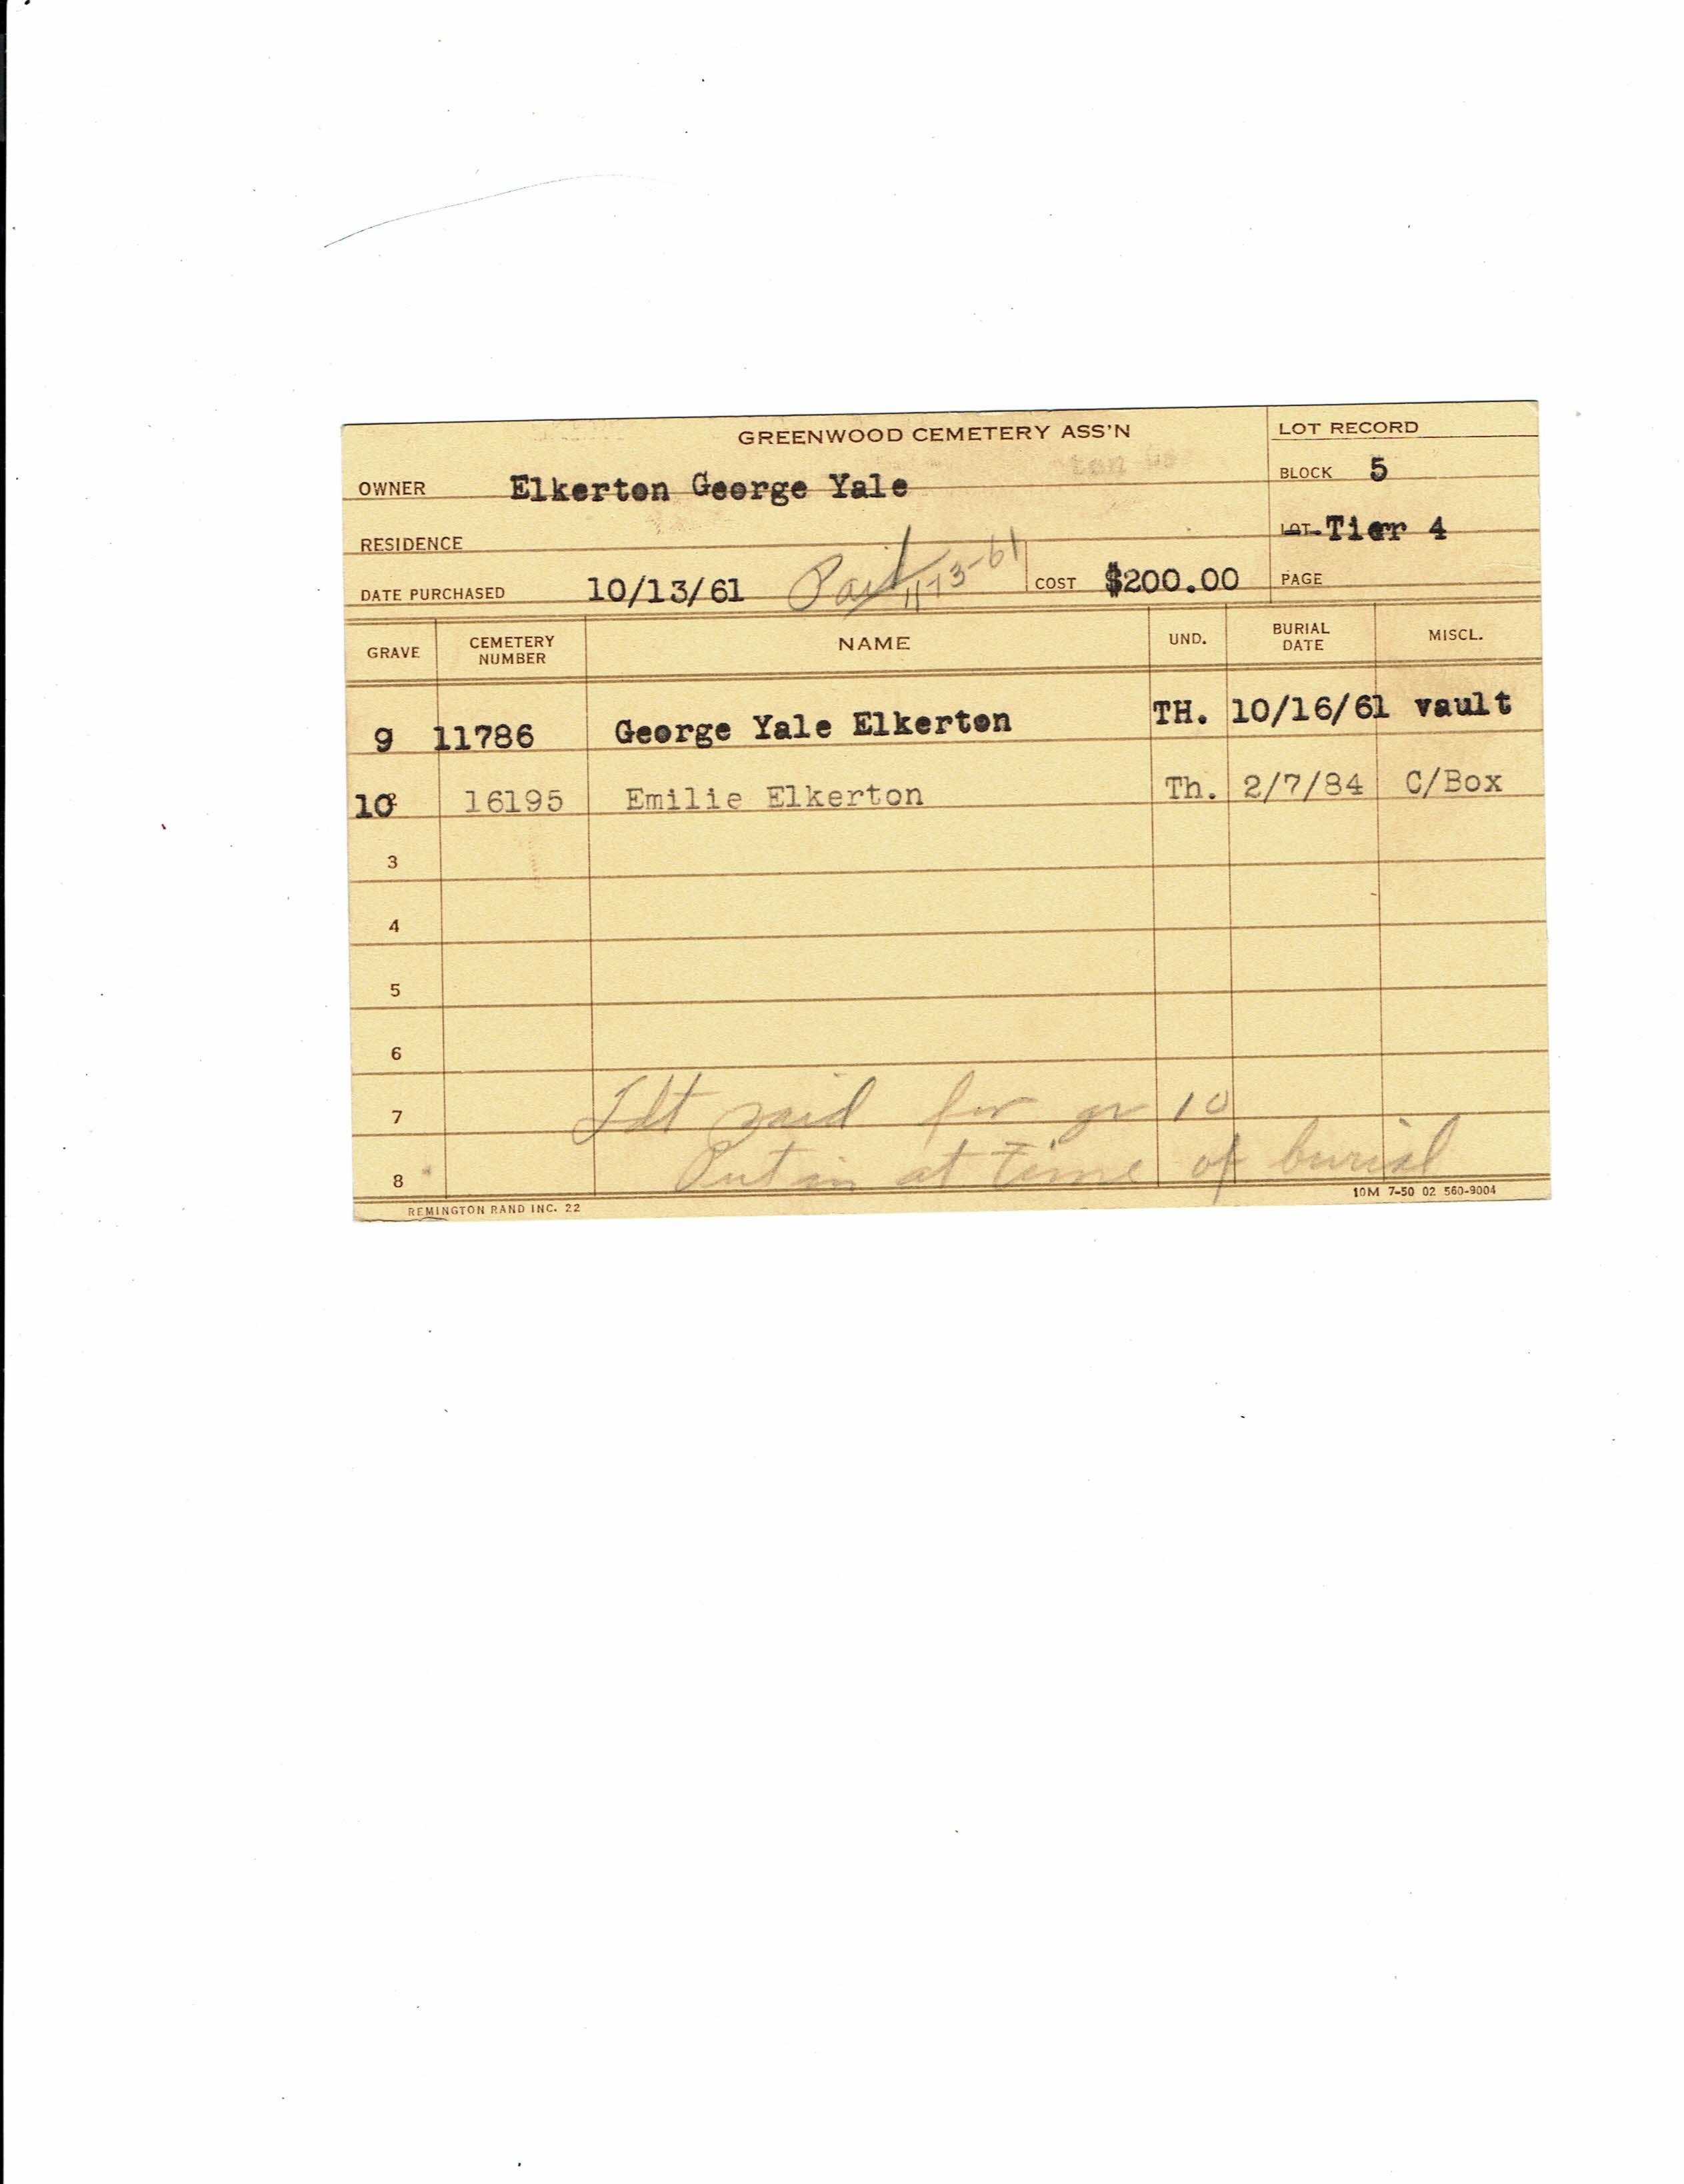 GREENWOOD CEMETERY ASS'N
LOT RECORD
OWNER Elkerton George Yale
BLOCK 5
RESIDENCE
LOT Tier 4
DATE PURCHASED 10/13/61 Paid 11-13-61 COST $200.00 PAGE
GRAVE CEMETERY NUMBER NAME UND. BURIAL DATE MISCL.
9 11786 George Yale Elkerton TH. 10/16/61 vault
10 16195 Emilie Elkerton Th. 2/7/84 C/Box
3
4
5
6
7 paid for gr 10
8 Put in at time of burial
REMINGTON RAND INC. 22
10M 7-50 02 560-9004